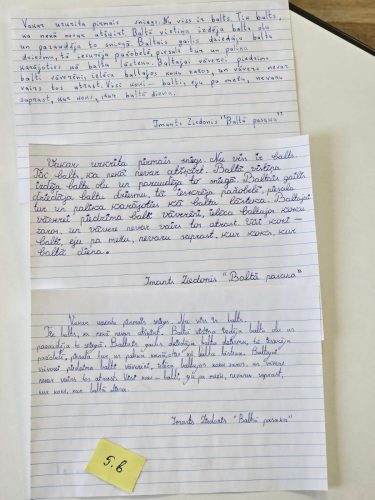 Vakar uzsnita pirmais sniegs. Nu viss ir balts. Tik balts,
ka nekā nevar atšķirt. Balta vistiņa izdēja baltu olu
un pazaudēja to sniegā. Baltais gailis dziedāja baltu
dziesmu, tā ieskrēja pažobelē, piesala tur un palika
karājoties kā balta lāsteka. Baltajai vāverei piedzima
balti vāverēni, ielēca baltajos koku zaros, un vāvere nevar
vairs tos atrast. Visi koki - balti, eju pa mežu, nevaru
saprast, kur koks, kur balta diena.
Imants Ziedonis "Baltā pasaka"
Vakar uzsnita pirmais sniegs. Nu viss ir balts.
Tik balts, ka nekā nevar atšķirt. Balta vistiņa
izdēja baltu olu un pazaudēja to sniegā. Baltais gailis
dziedāja baltu dziesmu, tā ieskrēja pažobelē, piesala
tur un palika karājoties kā balta lāsteka. Baltajai
vāverei piedzima balti vāverēni, ielēca baltajos koku
zaros, un vāvere nevar vairs tos atrast. Visi koki -
balti, eju pa mežu, nevaru saprast, kur koks, kur
baltā diena.
Imants Ziedonis "Baltā pasaka"
Vakar uzsnita pirmais sniegs. Nu viss ir balts.
Tik balts, ka nekā nevar atšķirt. Balta vistiņa izdēja baltu olu un
pazaudēja to sniegā. Baltais gailis dziedāja baltu dziesmu, tā ieskrēja
pažobelē, piesala tur un palika karājoties kā balta lāsteka. Baltajai
vāverei piedzima balti vāverēni, ielēca baltajos koku zaros, un vāvere
nevar vairs tos atrast. Visi koki - balti, eju pa mežu, nevaru saprast,
kur koks, kur balta diena.
Imants Ziedonis "Baltā pasaka"
5.b